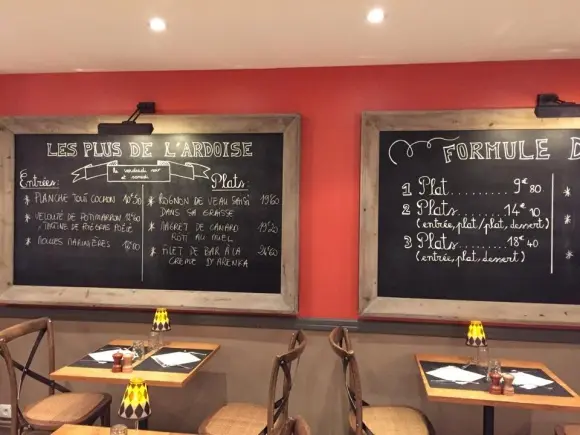 LES PLUS DE L'ARDOISE
le vendredi soir
et samedi
Entrées:
* PLANCHE TOUT COCHON 10€50
* VELOUTÉ DE POTIMARRON
TARTINE DE FOIE GRAS POÊLÉ
* MOULES MARINIÈRES
Plats:
* ROGNON DE VEAU SAISI 19€60
DANS SA GRAISSE
* MAGRET DE CANARD 19€20
RÔTI AU MIEL
* FILET DE BAR À LA
CRÈME D'ARENKA
FORMULE D
1 Plat......... 9€80
2 Plats....... 14€10
(entrée, plat/plat, dessert)
3 Plats....... 18€40
(entrée, plat, dessert)